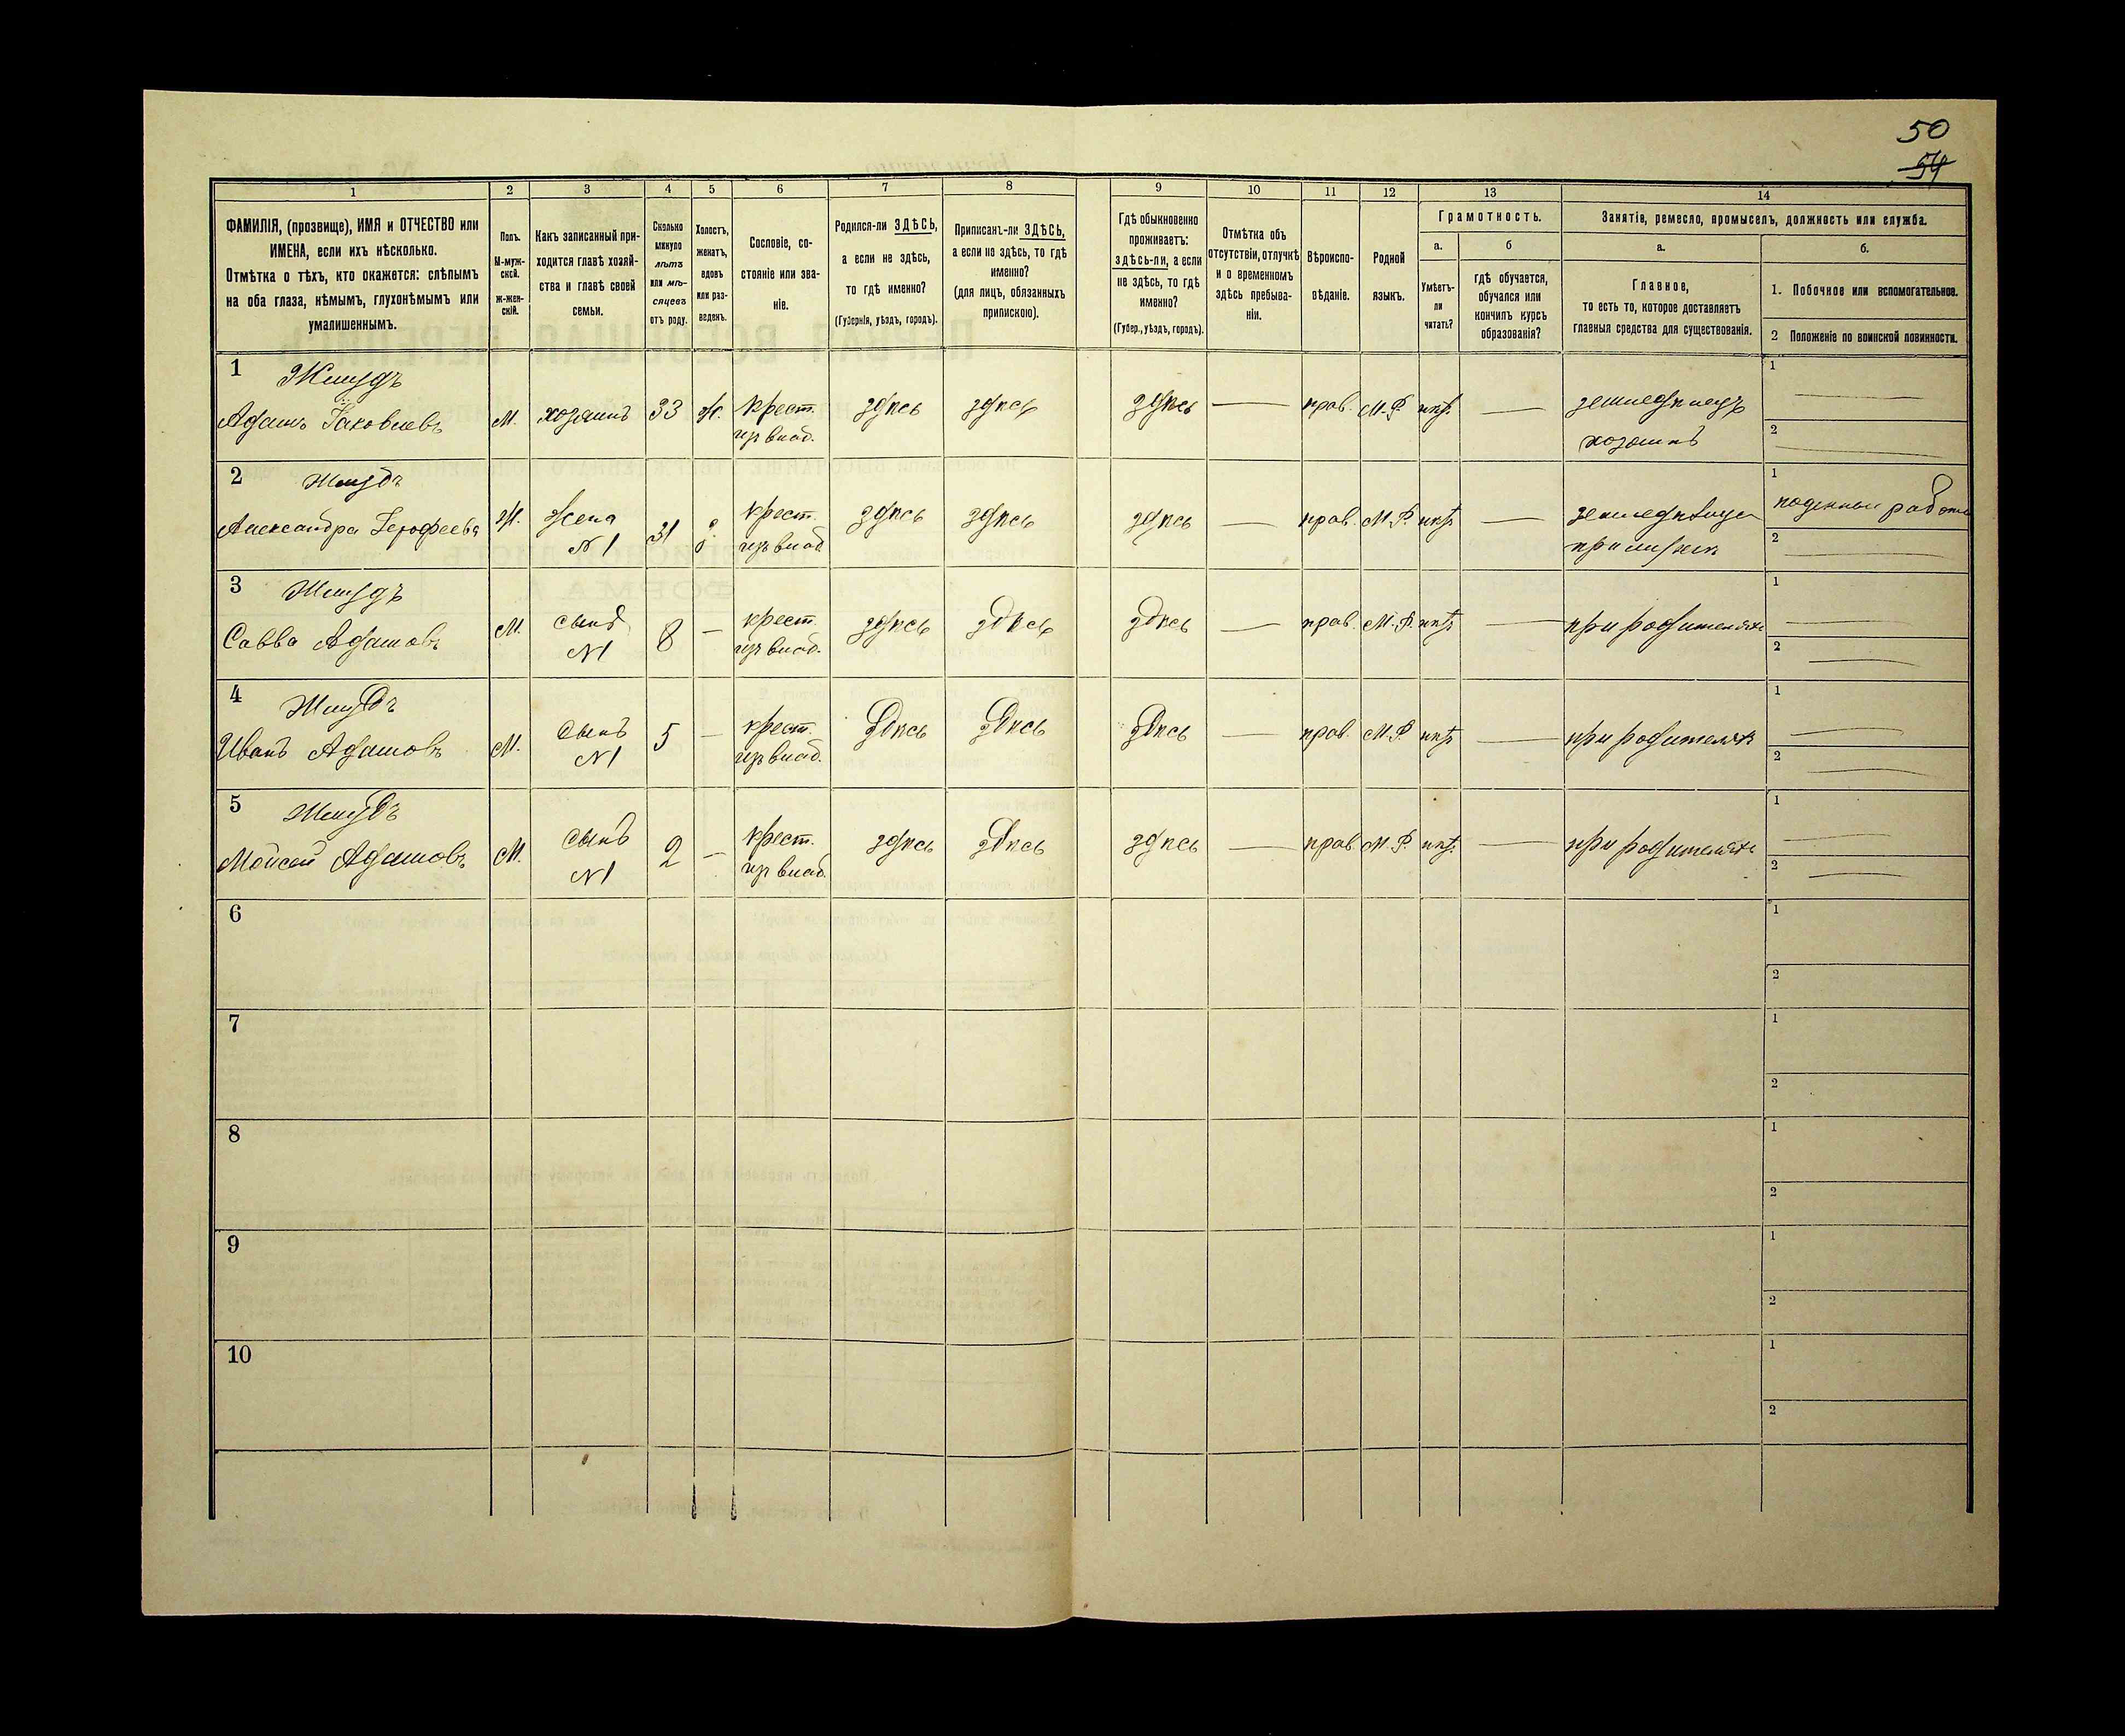 50
54
1
2
3
4
5
6
7
8
9
10
11
12
13
14
ФАМИЛІЯ, (прозвище), ИМЯ и ОТЧЕСТВО или
ИМЕНА, если ихъ нѣсколько.
Отмѣтка о тѣхъ, кто окажется: слѣпымъ
на оба глаза, нѣмымъ, глухонѣмымъ или
умалишеннымъ.
Полъ.
М-муж-
ской.
ж-жен-
скій.
Какъ записанный при-
ходится главѣ хозяй-
ства и главѣ своей
семьи.
Сколько
минуло
лѣтъ
или мѣ-
сяцевъ
отъ роду.
Холостъ,
женатъ,
вдовъ
или раз-
веденъ.
Сословіе, со-
стояніе или зва-
ніе.
Родился-ли ЗДѢСЬ,
а если не здѣсь,
то гдѣ именно?
(Губернія, уѣздъ, городъ).
Приписанъ-ли ЗДѢСЬ,
а если не здѣсь, то гдѣ
именно?
(для лицъ, обязанныхъ
припискою).
Гдѣ обыкновенно
проживаетъ:
здѣсь-ли, а если
не здѣсь, то гдѣ
именно?
(Губер., уѣздъ, городъ).
Отмѣтка объ
отсутствіи, отлучкѣ
и о временномъ
здѣсь пребыва-
ніи.
Вѣроиспо-
вѣданіе.
Родной
языкъ.
Грамотность.
а.
Умѣетъ-
ли
читать?
б
гдѣ обучается,
обучался или
кончилъ курсъ
образованія?
Занятіе, ремесло, промыселъ, должность или служба.
а.
Главное,
то есть то, которое доставляетъ
главныя средства для существованія.
б.
1. Побочное или вспомогательное.
2 Положеніе по воинской повинности.
1
Жмудъ
Адамъ Іаковлевъ
М. хозяинъ 33 ж. крест.
изъ влад.
здѣсь здѣсь здѣсь — прав. М.Р. нѣт. —
земледѣлецъ
хозяинъ
1 —
2 —
2
Жмудъ
Александра Ерофеева
Ж. жена
N 1
31
крест.
изъ влад.
здѣсь здѣсь здѣсь — прав. М.Р. нѣт. —
земледѣлица
при мужѣ
1 поденная работа
2 —
3
Жмудъ
Савва Адамовъ
М. сынъ
N 1
8 — крест.
изъ влад.
здѣсь здѣсь здѣсь — прав. М.Р. нѣт. —
при родителяхъ
1 —
2 —
4
Жмудъ
Иванъ Адамовъ
М. сынъ
N 1
5 — крест.
изъ влад.
здѣсь здѣсь здѣсь — прав. М.Р. нѣт. —
при родителяхъ
1 —
2 —
5
Жмудъ
Мойсей Адамовъ
М. сынъ
N 1
2 — крест.
изъ влад.
здѣсь здѣсь здѣсь — прав. М.Р. нѣт. —
при родителяхъ
1 —
2 —
6
1
2
7
1
2
8
1
2
9
1
2
10
1
2